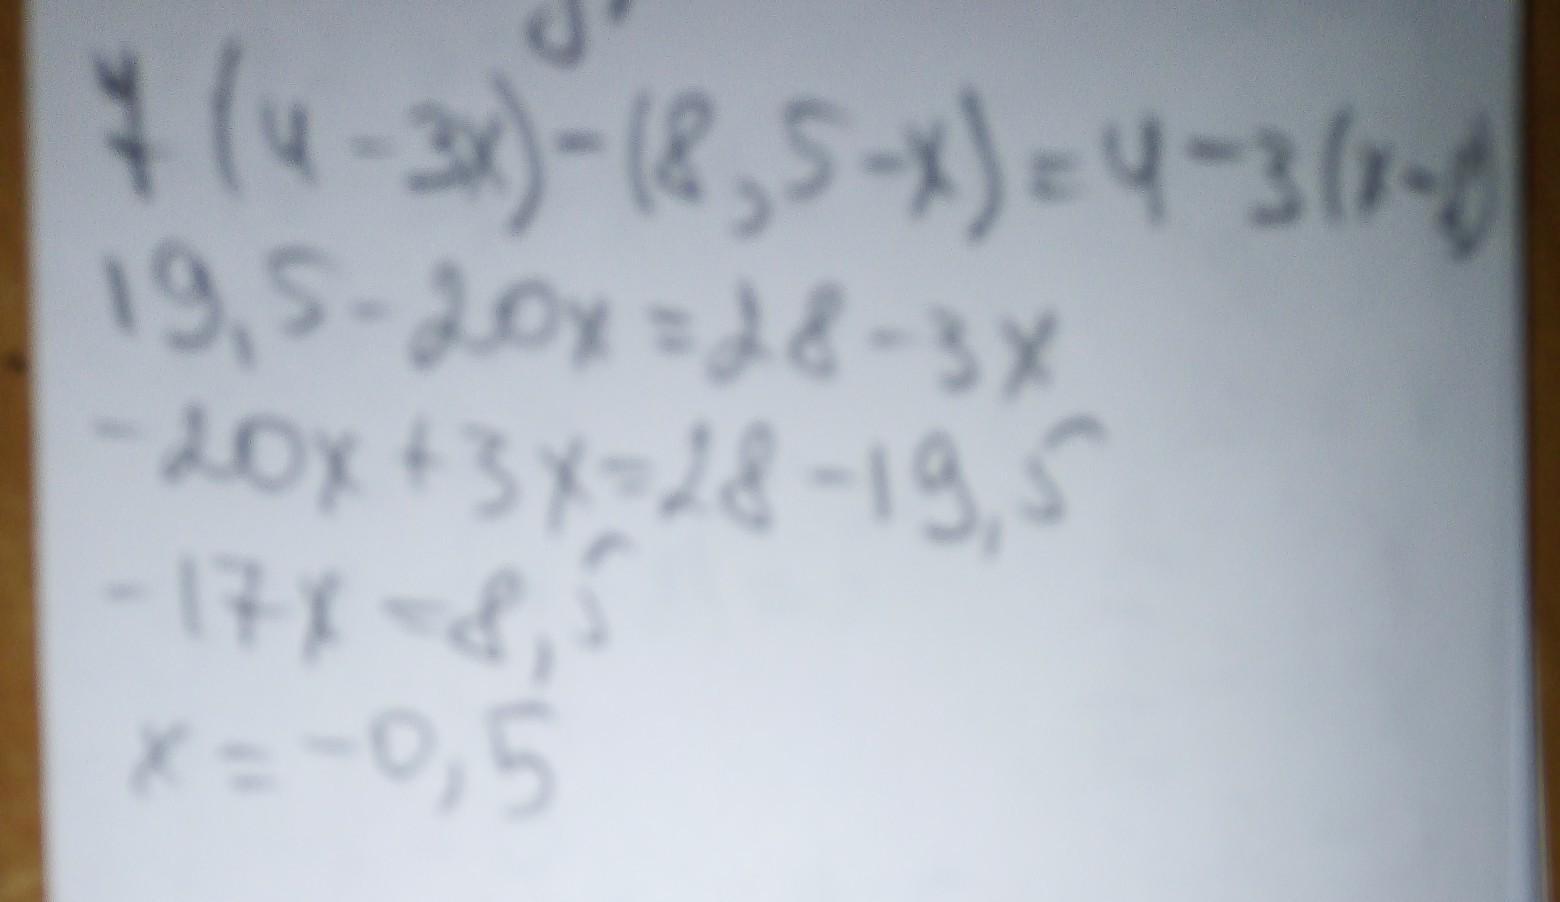 7(4-3x)-(8,5-x)=4-3(x-8)
19,5-20x=28-3x
-20x+3x=28-19,5
-17x=8,5
x=-0,5